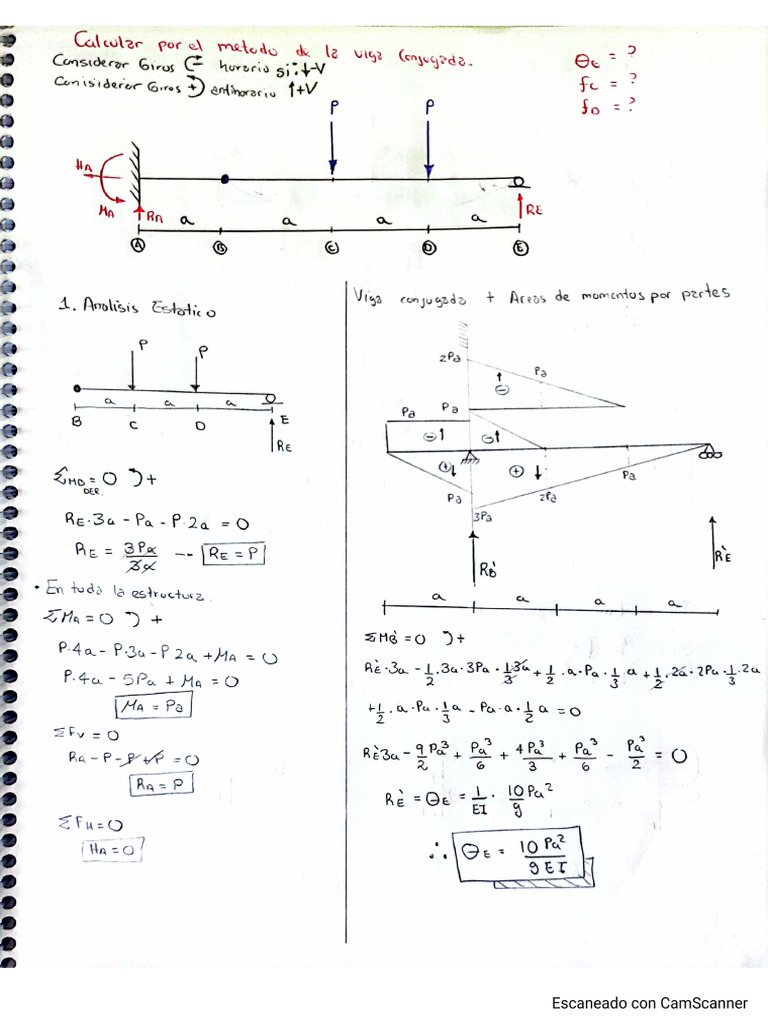 Calcular por el metodo de la viga Conjugada.
Considerar Giros horario si: ↓-V
Conisiderar Giros +) antihorario ↑+V
θE = ?
fC = ?
fD = ?
P P
HA
MA RA RE
a a a a
A B C D E
1. Analisis Estatico
P P
a a a
B C D E
RE
ΣMB = 0 +
DER.
RE·3a - Pa - P·2a = 0
RE = 3Pa/3a -- RE = P
• En tuda la estructura.
ΣMA = 0 +
P·4a - P·3a - P2a + MA = 0
P·4a - 5Pa + MA = 0
MA = Pa
ΣFV = 0
RA - P - P + P = 0
RA = P
ΣFH = 0
HA = 0
Viga conjugada + Areas de momentos por partes
2Pa
Pa
⊖
Pa Pa
⊖ ⊖
⊕ ⊕
Pa 2Pa Pa
3Pa
RB' RE'
a a a a
ΣMB' = 0 +
RE'·3a - 1/2·3a·3Pa·1/3·3a + 1/2·a·Pa·1/3·a + 1/2·2a·2Pa·1/3·2a
+ 1/2·a·Pa·1/3a - Pa·a·1/2a = 0
RE'3a - 9/2 Pa³ + Pa³/6 + 4Pa³/3 + Pa³/6 - Pa³/2 = 0
RE' = θE = 1/EI · 10Pa²/9
∴ θE = 10Pa²/9EI
Escaneado con CamScanner